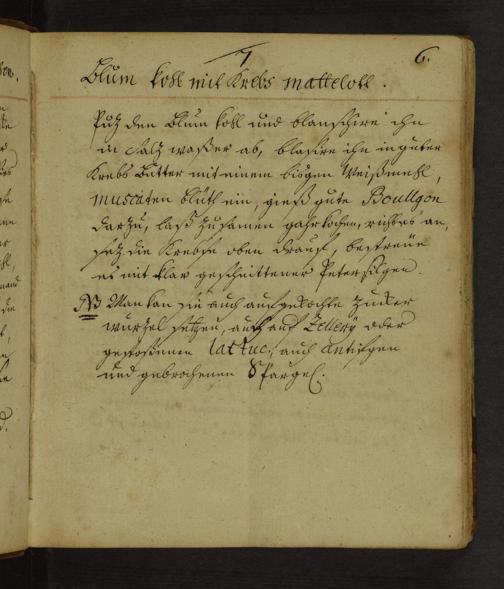 7
6.
Blum kohl mit Krebs mattelott.
Putz den Blum kohl und blanschire ihn
in Saltz waßer ab, blasire ihn in guter
Krebs Butter mit einem bisgen Weißmehl,
muscaten blüth ein, gieß gute Boullgon
darzu, laß zusamen gahr kochen, richt es an,
setz die Krebse oben drauf, bestreue
es mit klar geschnittener Petersilgen.
NB Man kan sie auch auf gekochte Zucker
wurzel setzen, auch auf Zellery oder
lattuc, auch Antifgen
und gebrochenen Spargel.